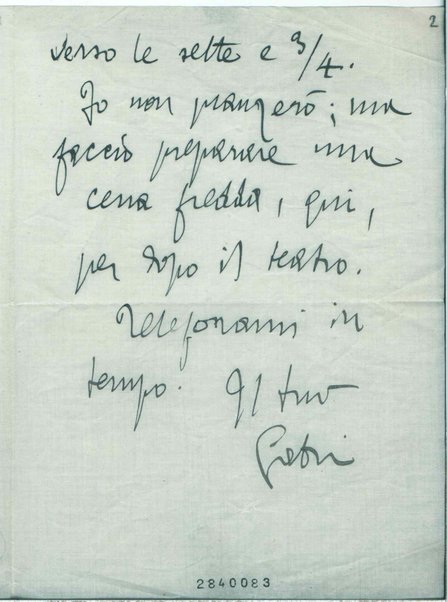 2
verso le sette e 3/4.
Io non pranzerò; ma
faccio preparare una
cena fredda, qui,
per dopo il teatro.
Telefonami in
tempo. Il tuo
Gabri
2840083